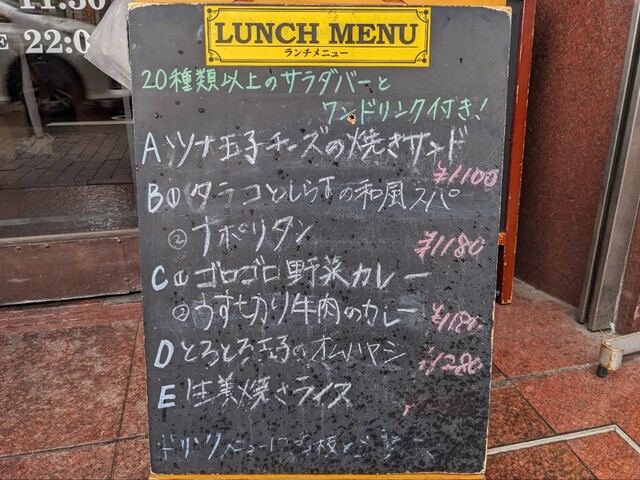 11:30
22:0
LUNCH MENU
ランチメニュー
20種類以上のサラダバーと
ワンドリンク付き!
A ツナ玉子チーズの焼きサンド
¥1100
B① タラコとしらすの和風スパ
② ナポリタン ¥1180
C① ゴロゴロ野菜カレー
② うす切り牛肉のカレー ¥1180
D とろとろ玉子のオムハヤシ ¥1280
E 生姜焼きライス
ドリンクメニューは